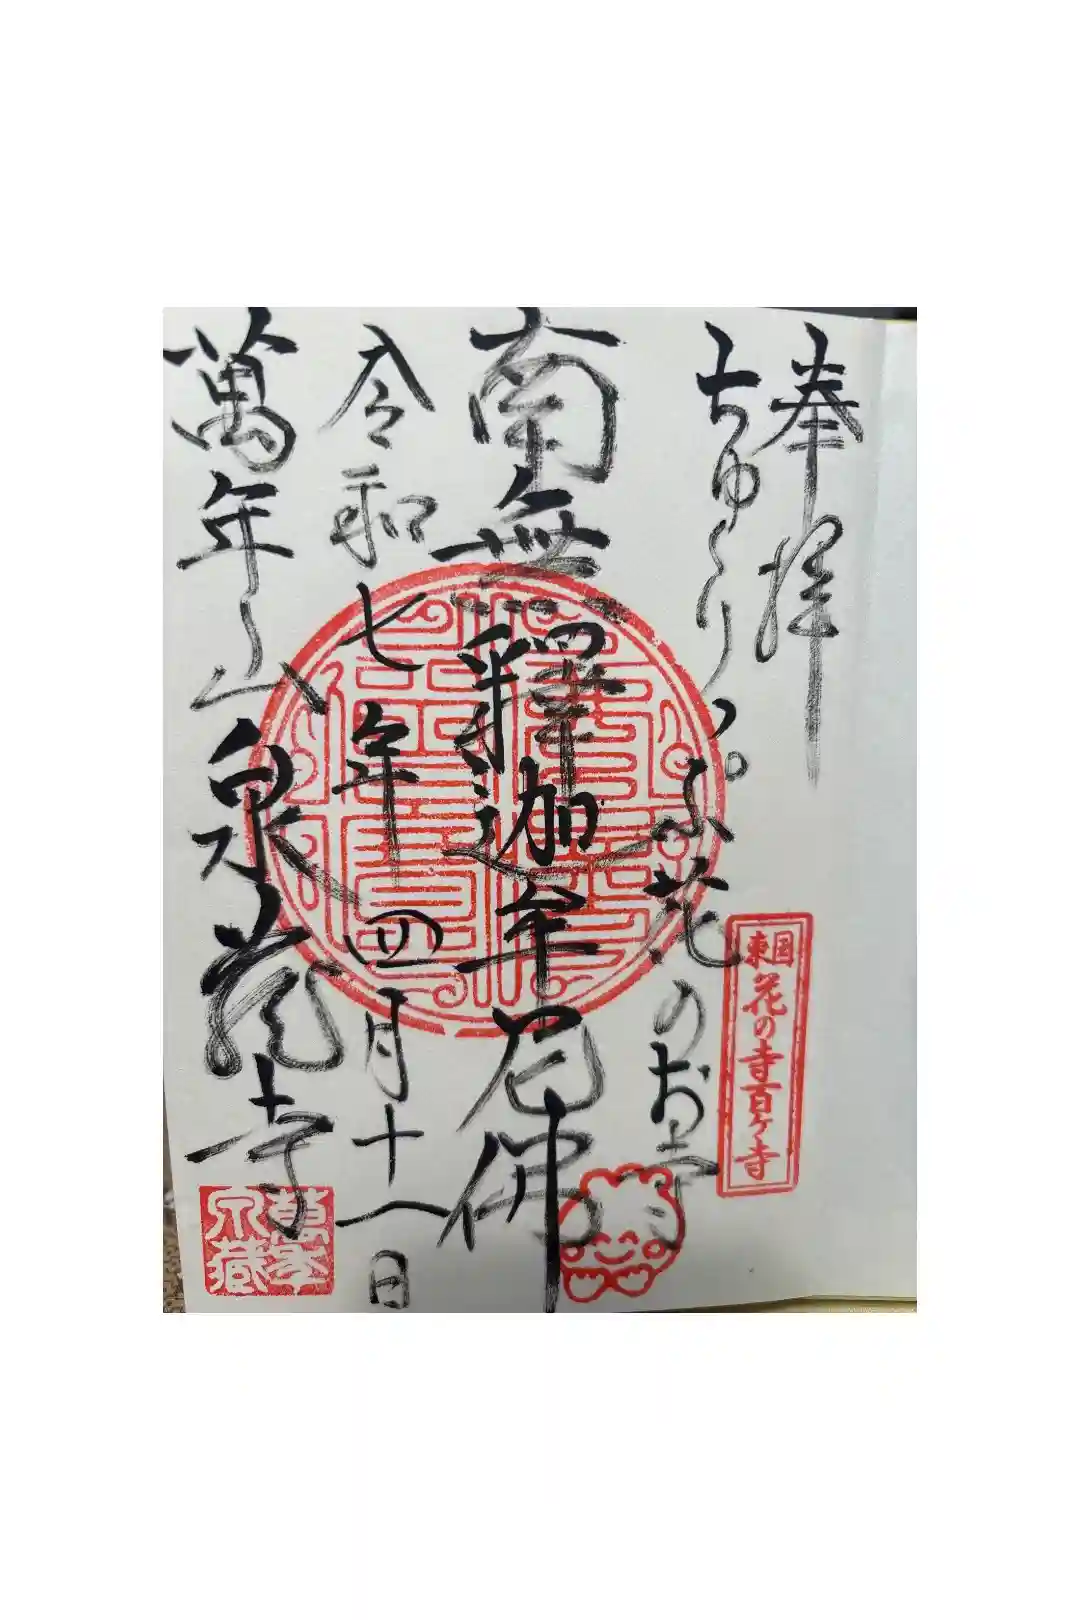 奉拝
ちゅ〜りっぷ花のお寺
東国花の寺百ヶ寺
南無釋迦牟尼佛
令和七年四月十八日
萬年山泉蔵寺